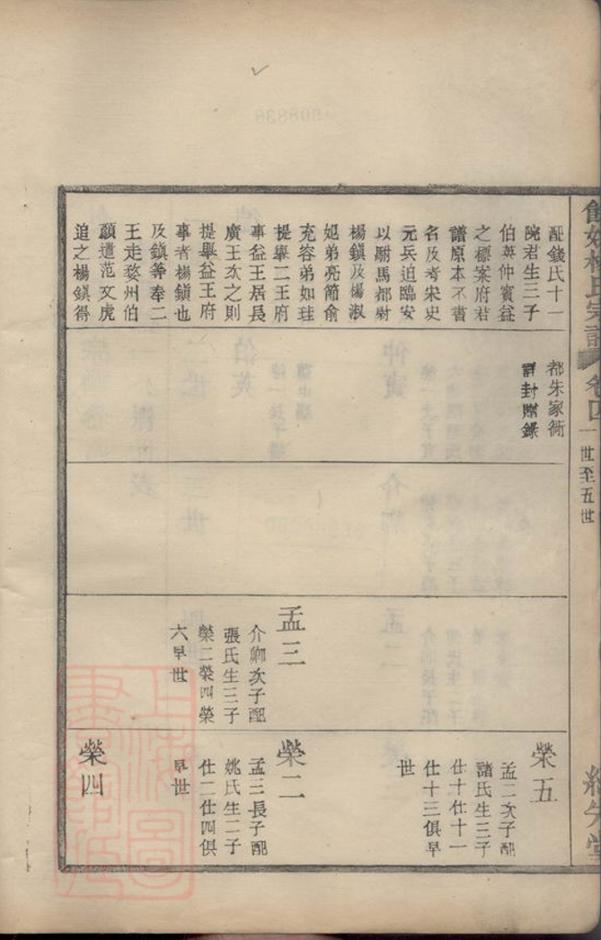 氏宗譜
卷四
一世至五世
配錢氏十一
院君生三子
伯英仲賓益
之標案府君
譜原本不書
名及考宋史
元兵迫臨安
以駙馬都尉
楊鎮及楊淑
妃弟亮節俞
充容弟如珪
提舉二王府
事益王居長
廣王次之則
提舉益王府
事者楊鎮也
及鎮等奉二
王走婺州伯
顏遣范文虎
追之楊鎮得
都朱家衖
詳封贈錄
孟三
介卿次子配
張氏生三子
榮二榮四榮
六早世
榮五
孟二次子配
諸氏生三子
仕十仕十一
仕十三俱早
世
榮二
孟三長子配
姚氏生二子
仕二仕四俱
早世
榮四